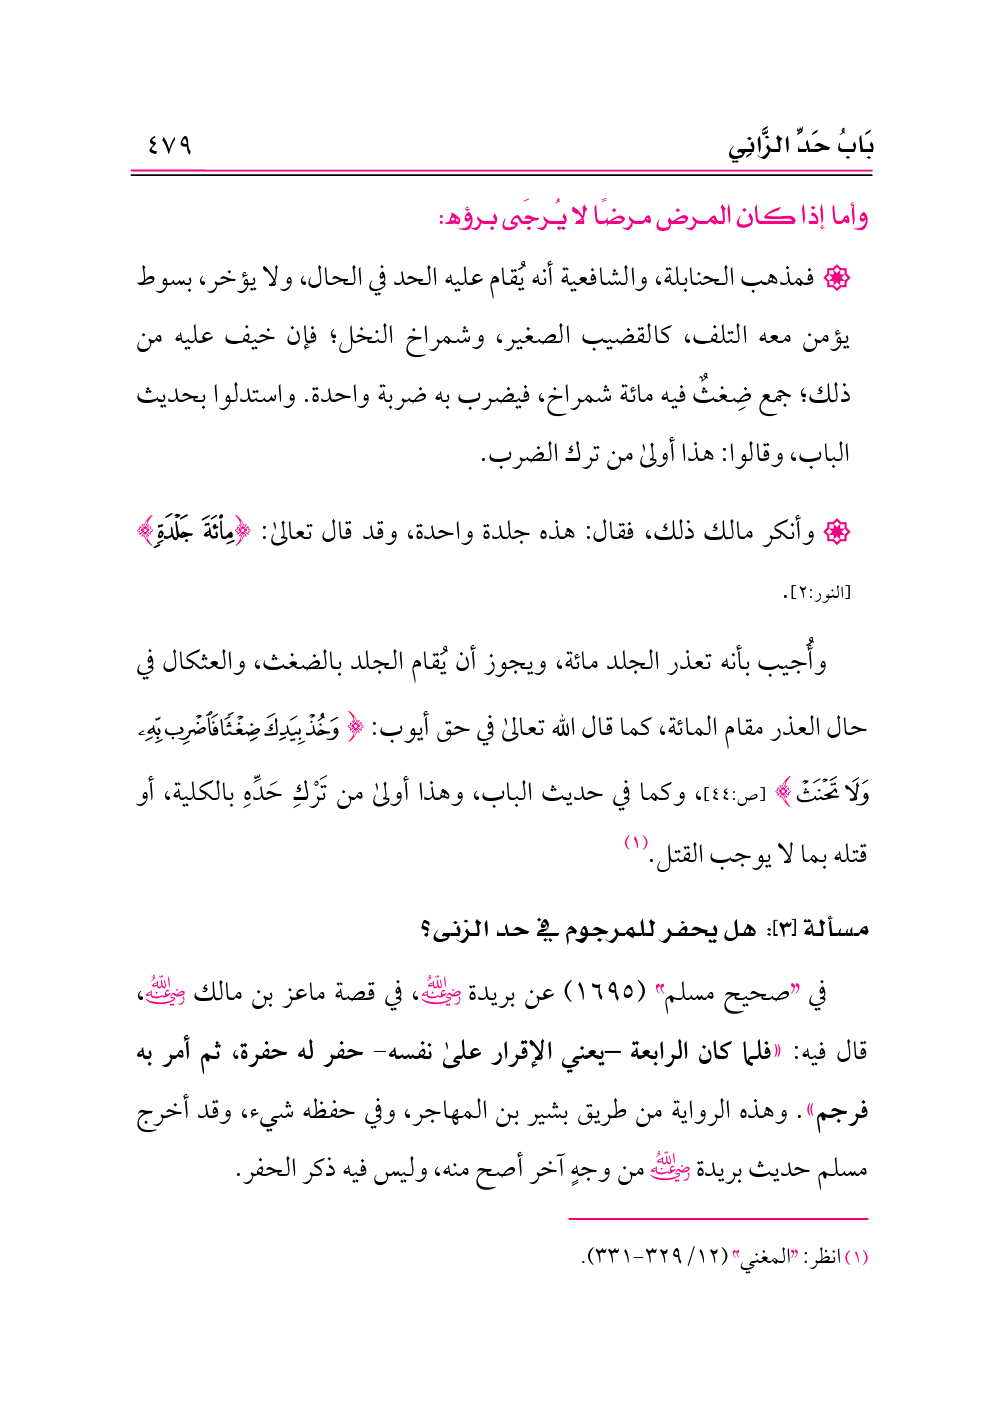 بَابُ حَدِّ الزَّانِي ٤٧٩
وأما إذا كان المرض مرضًا لا يُرجَى برؤه:
فمذهب الحنابلة، والشافعية أنه يُقام عليه الحد في الحال، ولا يؤخر، بسوط
يؤمن معه التلف، كالقضيب الصغير، وشمراخ النخل؛ فإن خيف عليه من
ذلك؛ جمع ضِغثٌ فيه مائة شمراخ، فيضرب به ضربة واحدة. واستدلوا بحديث
الباب، وقالوا: هذا أولىٰ من ترك الضرب.
وأنكر مالك ذلك، فقال: هذه جلدة واحدة، وقد قال تعالىٰ: ﴿مِاْئَةَ جَلْدَةٍ﴾
[النور:٢].
وأُجيب بأنه تعذر الجلد مائة، ويجوز أن يُقام الجلد بالضغث، والعثكال في
حال العذر مقام المائة، كما قال الله تعالىٰ في حق أيوب: ﴿وَخُذْ بِيَدِكَ ضِغْثًا فَٱضْرِب بِّهِۦ
وَلَا تَحْنَثْ﴾ [ص:٤٤]، وكما في حديث الباب، وهذا أولىٰ من تَرْكِ حَدِّهِ بالكلية، أو
قتله بما لا يوجب القتل.(١)
مسألة [٣]: هل يحفر للمرجوم في حد الزنى؟
في "صحيح مسلم" (١٦٩٥) عن بريدة رضي الله عنه، في قصة ماعز بن مالك رضي الله عنه،
قال فيه: «فلما كان الرابعة –يعني الإقرار علىٰ نفسه– حفر له حفرة، ثم أمر به
فرجم». وهذه الرواية من طريق بشير بن المهاجر، وفي حفظه شيء، وقد أخرج
مسلم حديث بريدة رضي الله عنه من وجهٍ آخر أصح منه، وليس فيه ذكر الحفر.
(١) انظر: "المغني" (١٢/ ٣٢٩-٣٣١).